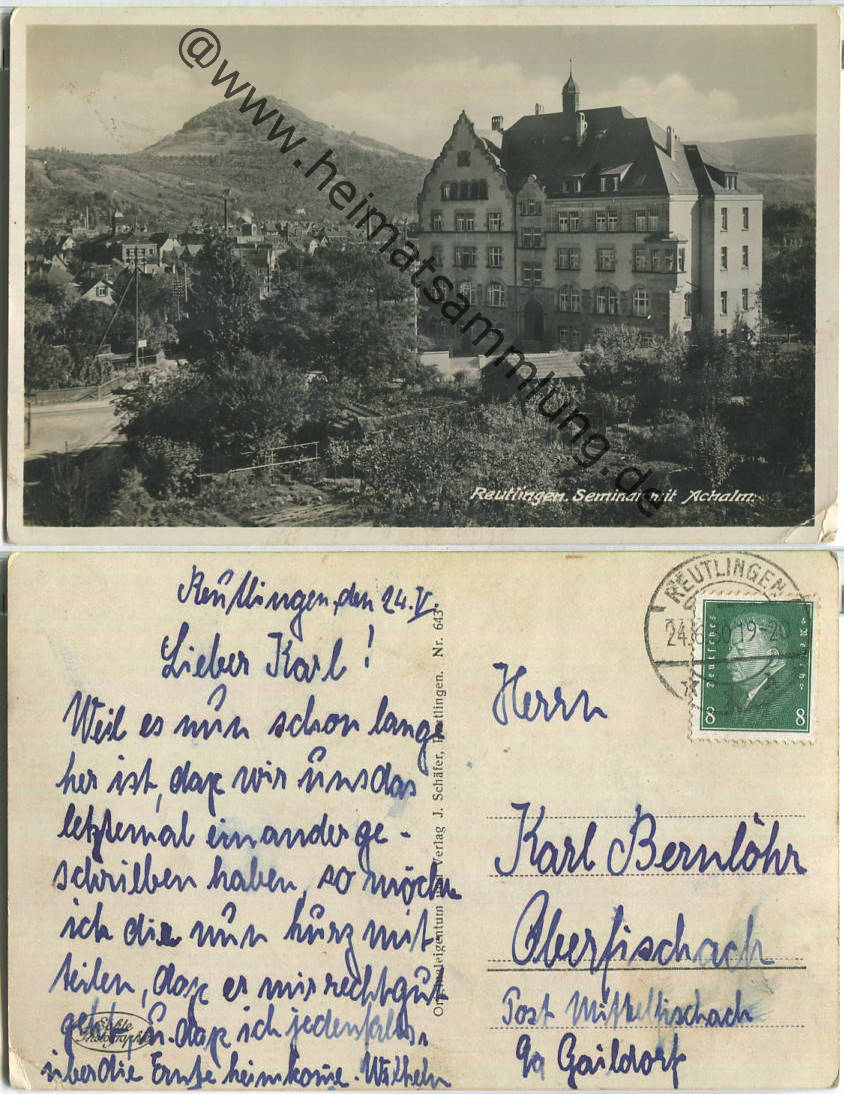 @www.heimatsammlung.de
Reutlingen. Seminar mit Achalm.
Reutlingen, den 24.V.
Lieber Karl!
Weil es nun schon lange
her ist, daß wir uns das
letztemal einander ge-
schrieben haben, so möchte
ich die nun kurz mit-
teilen, daß es mir recht gut
geht, u. daß ich jedenfalls,
über die Ernte heimkome. Wilhelm
Echte
Photographie
Originaleigentum und Verlag J. Schäfer, Reutlingen. Nr. 643
REUTLINGEN
24.8.30 19-20
Deutsches Reich
8 8
Herrn
Karl Bernlöhr
Oberfischach
Post Mittelfischach
Gaildorf